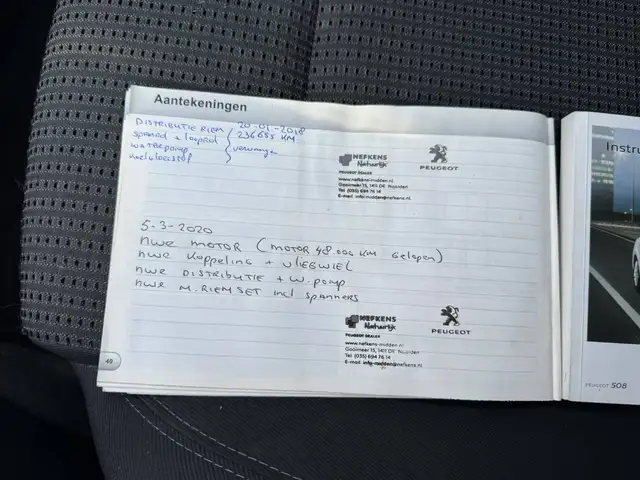 Aantekeningen
DISTRIBUTIE RIEM 20-01-2018
spanrol + looprol 236655 KM
waterpomp vervangen
koelvloeistof
NEFKENS
Natuurlijk
PEUGEOT DEALER
www.nefkens-midden.nl
Gooimeer 15, 1411 DE Naarden
Tel (035) 694 76 14
E-mail info-midden@nefkens.nl
PEUGEOT
5-3-2020
nwe MOTOR (MOTOR 48.000 KM Gelopen)
nwe Koppeling + VLIEGWIEL
nwe DISTRIBUTIE + W.pomp
nwe M.RIEMSET incl spanners
NEFKENS
Natuurlijk
PEUGEOT DEALER
www.nefkens-midden.nl
Gooimeer 15, 1411 DE Naarden
Tel (035) 694 76 14
E-mail info-midden@nefkens.nl
PEUGEOT
49
Instru
PEUGEOT 508